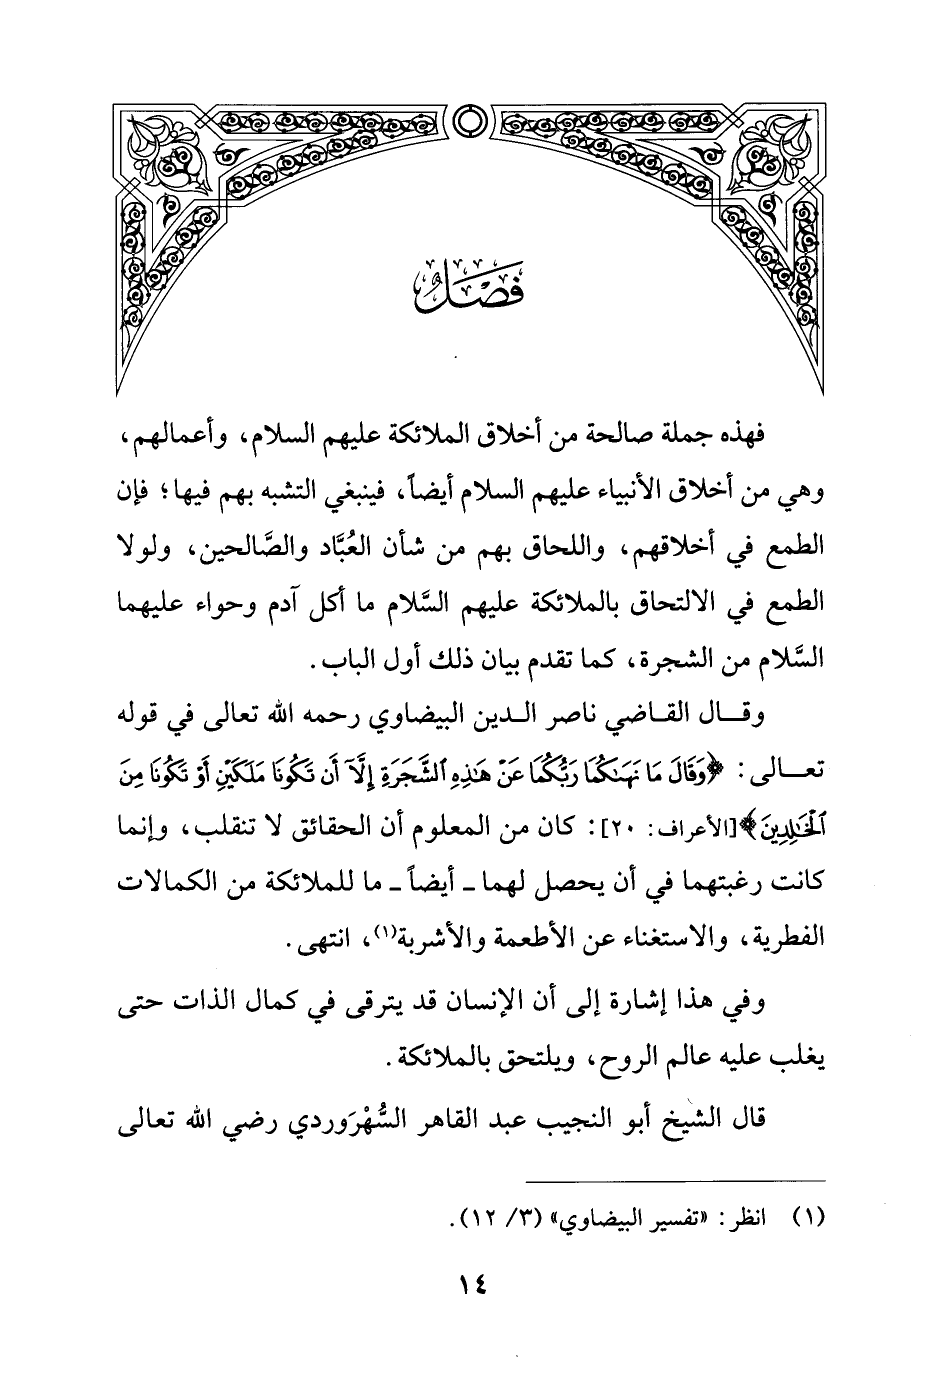 فَصْلٌ
فهذه جملة صالحة من أخلاق الملائكة عليهم السلام، وأعمالهم،
وهي من أخلاق الأنبياء عليهم السلام أيضاً، فينبغي التشبه بهم فيها؛ فإن
الطمع في أخلاقهم، واللحاق بهم من شأن العُبَّاد والصَّالحين، ولولا
الطمع في الالتحاق بالملائكة عليهم السَّلام ما أكل آدم وحواء عليهما
السَّلام من الشجرة، كما تقدم بيان ذلك أول الباب.
وقـال القـاضي ناصر الـدين البيضاوي رحمه الله تعالى في قوله
تعـالى: ﴿وَقَالَ مَا نَهَىٰكُمَا رَبُّكُمَا عَنْ هَٰذِهِ ٱلشَّجَرَةِ إِلَّآ أَن تَكُونَا مَلَكَيْنِ أَوْ تَكُونَا مِنَ
ٱلْخَٰلِدِينَ﴾[الأعراف: ٢٠]: كان من المعلوم أن الحقائق لا تنقلب، وإنما
كانت رغبتهما في أن يحصل لهما ـ أيضاً ـ ما للملائكة من الكمالات
الفطرية، والاستغناء عن الأطعمة والأشربة(١)، انتهى.
وفي هذا إشارة إلى أن الإنسان قد يترقى في كمال الذات حتى
يغلب عليه عالم الروح، ويلتحق بالملائكة.
قال الشيخ أبو النجيب عبد القاهر السُّهْرَوردي رضي الله تعالى
(١) انظر: «تفسير البيضاوي» (٣/ ١٢).
١٤